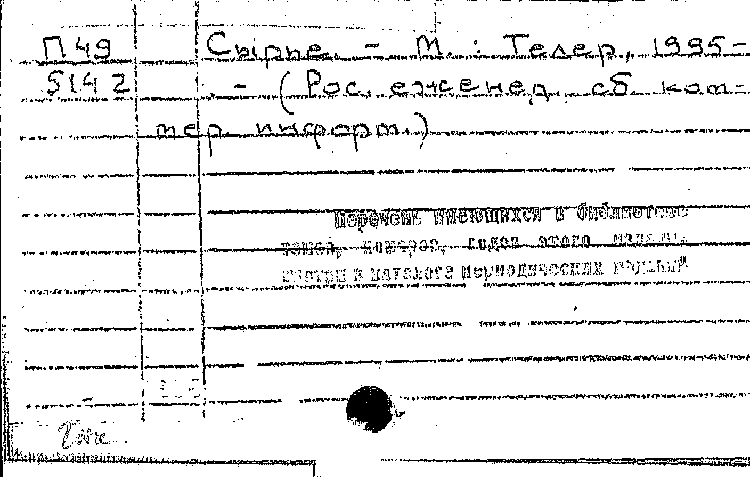 П49 Сырье. - М. : Телер, 1995-
5142 - (Рос. еженед. сб. ком-
мер. информ.)
Перечень имеющихся в библиотеке
томов, номеров, годов этого издания
смотри в каталоге периодических изданий